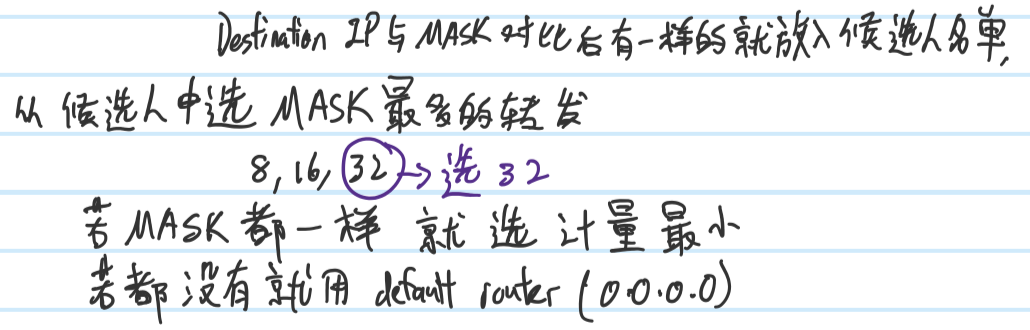 Destination IP与MASK对比后有一样的就放入候选人名单,
从候选人中选MASK最多的转发
8,16,32→选32
若MASK都一样 就选计量最小
若都没有就用 default router (0.0.0.0)